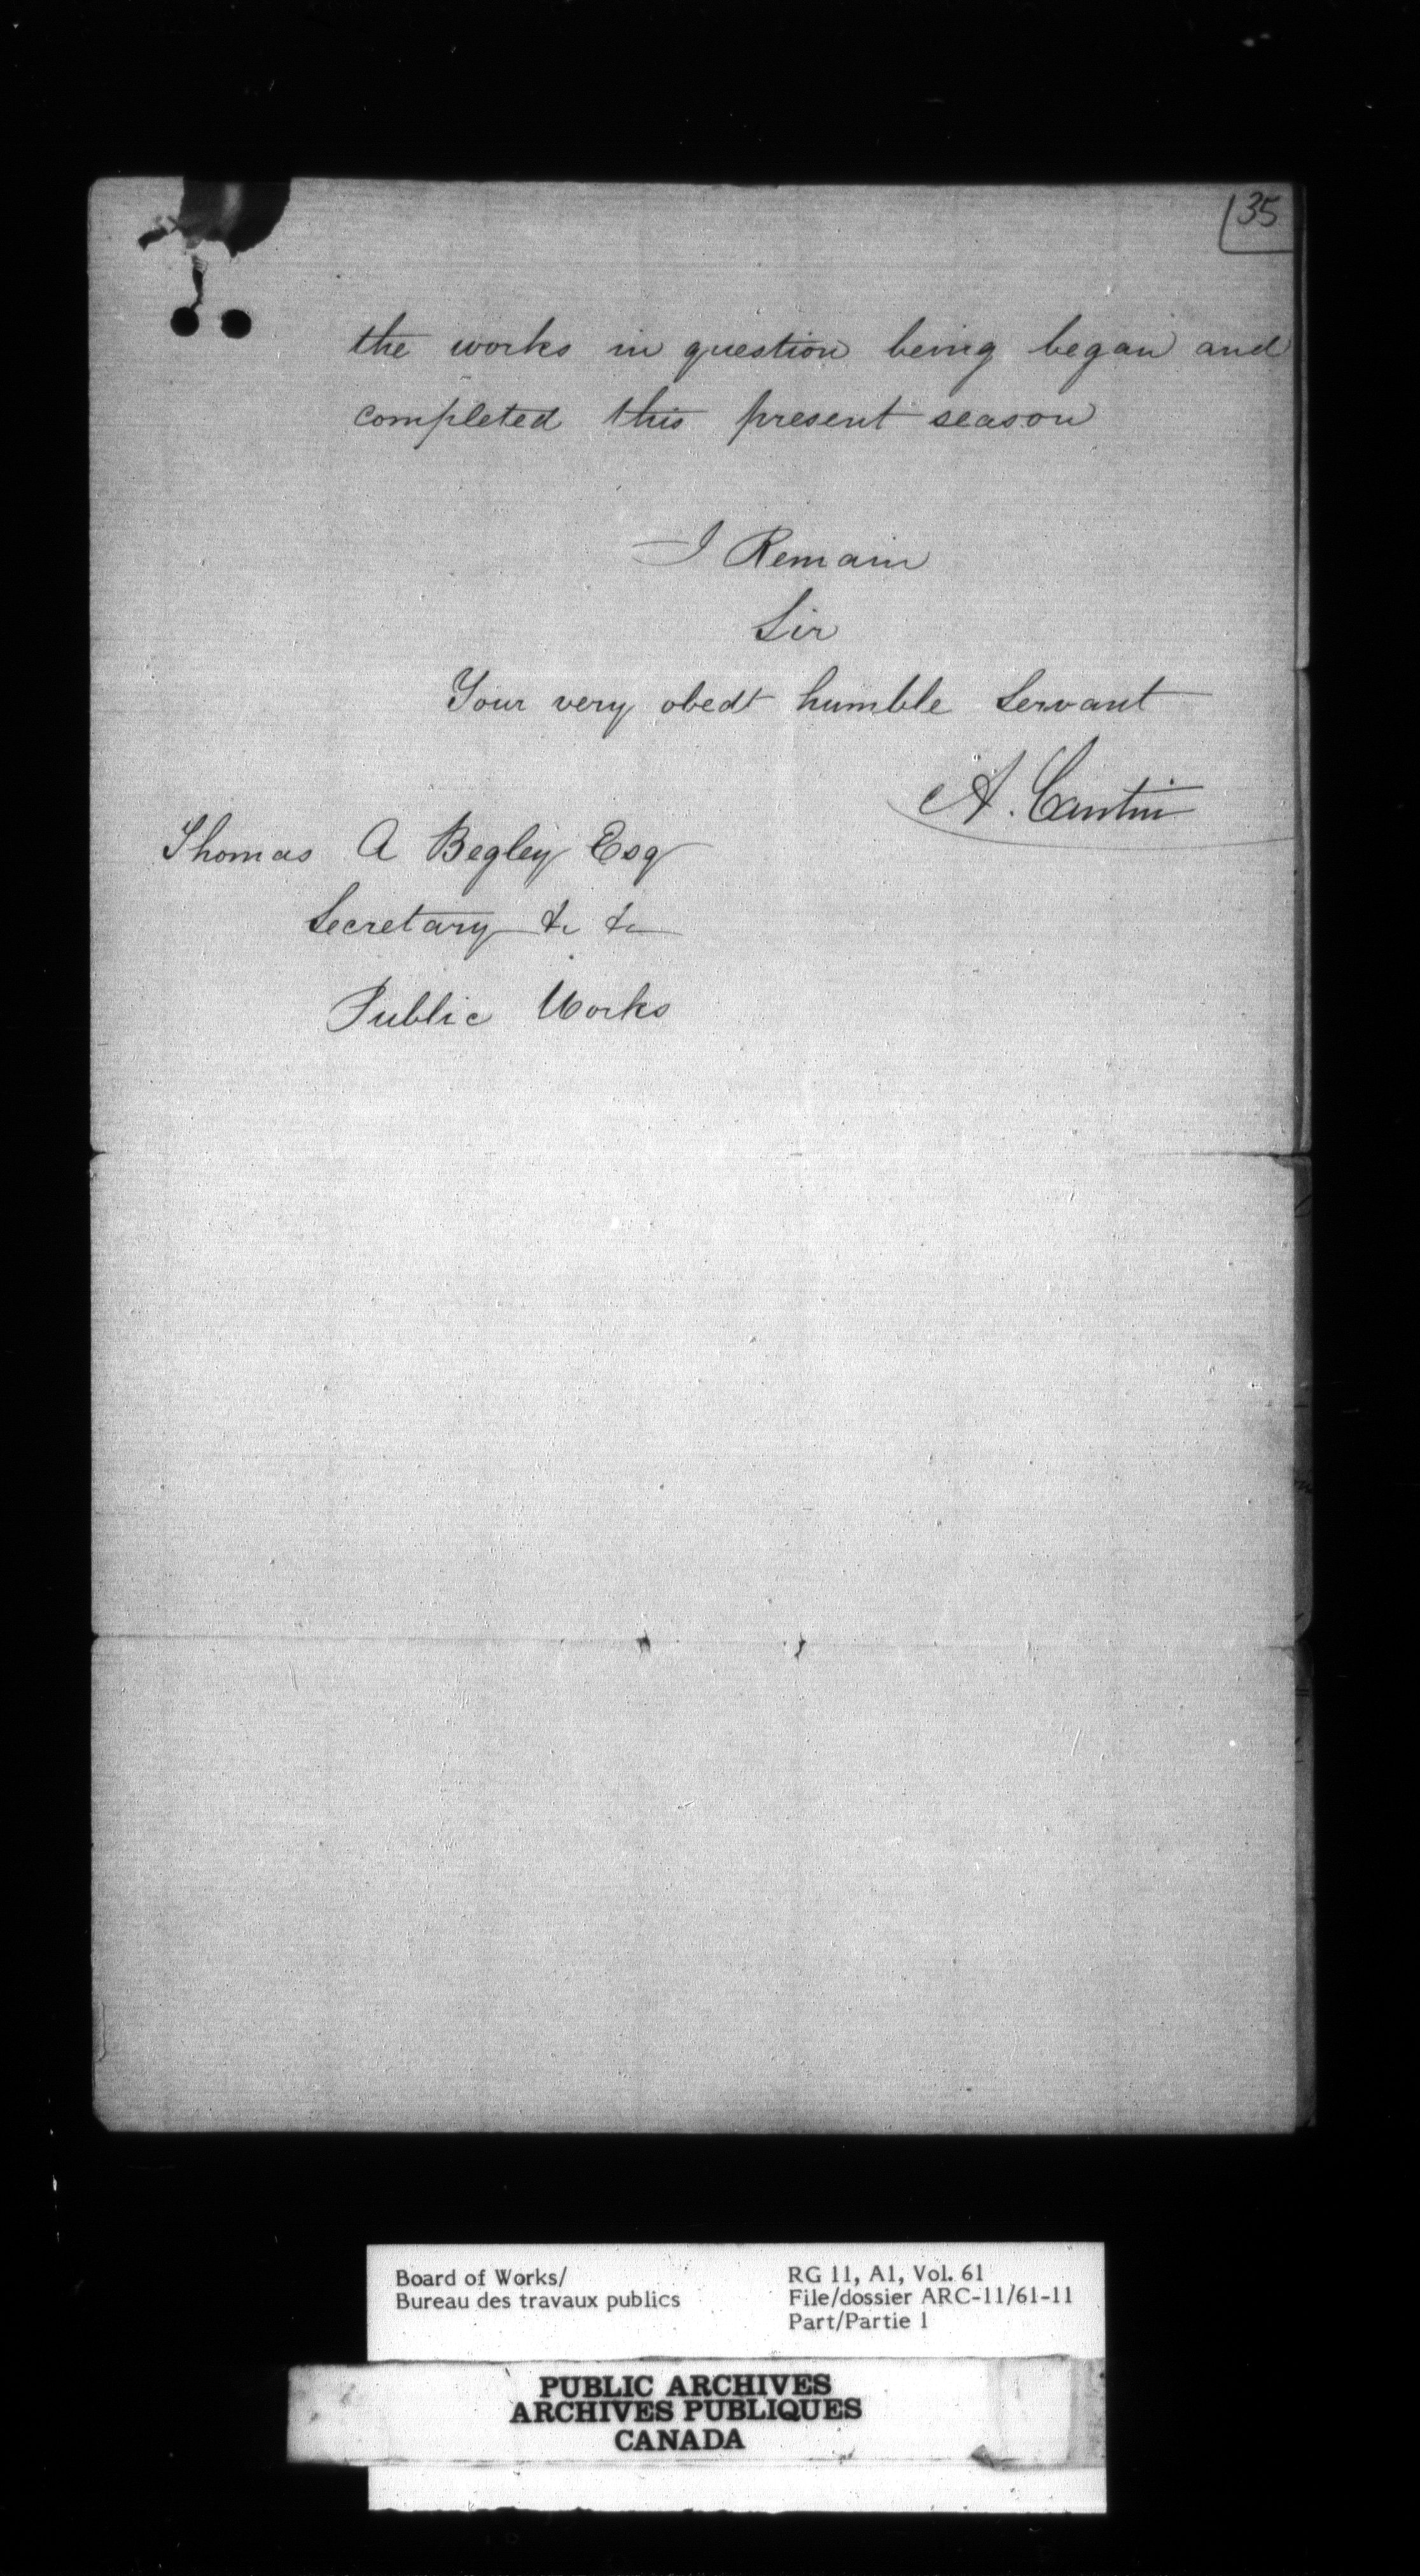 35
the works in question being began and
completed this present season
I Remain
Sir
Your very obedt humble Servant
A. Cantin
Thomas A Begley Esq
Secretary &c &c
Public Works
Board of Works/
Bureau des travaux publics
RG 11, A1, Vol. 61
File/dossier ARC-11/61-11
Part/Partie 1
PUBLIC ARCHIVES
ARCHIVES PUBLIQUES
CANADA